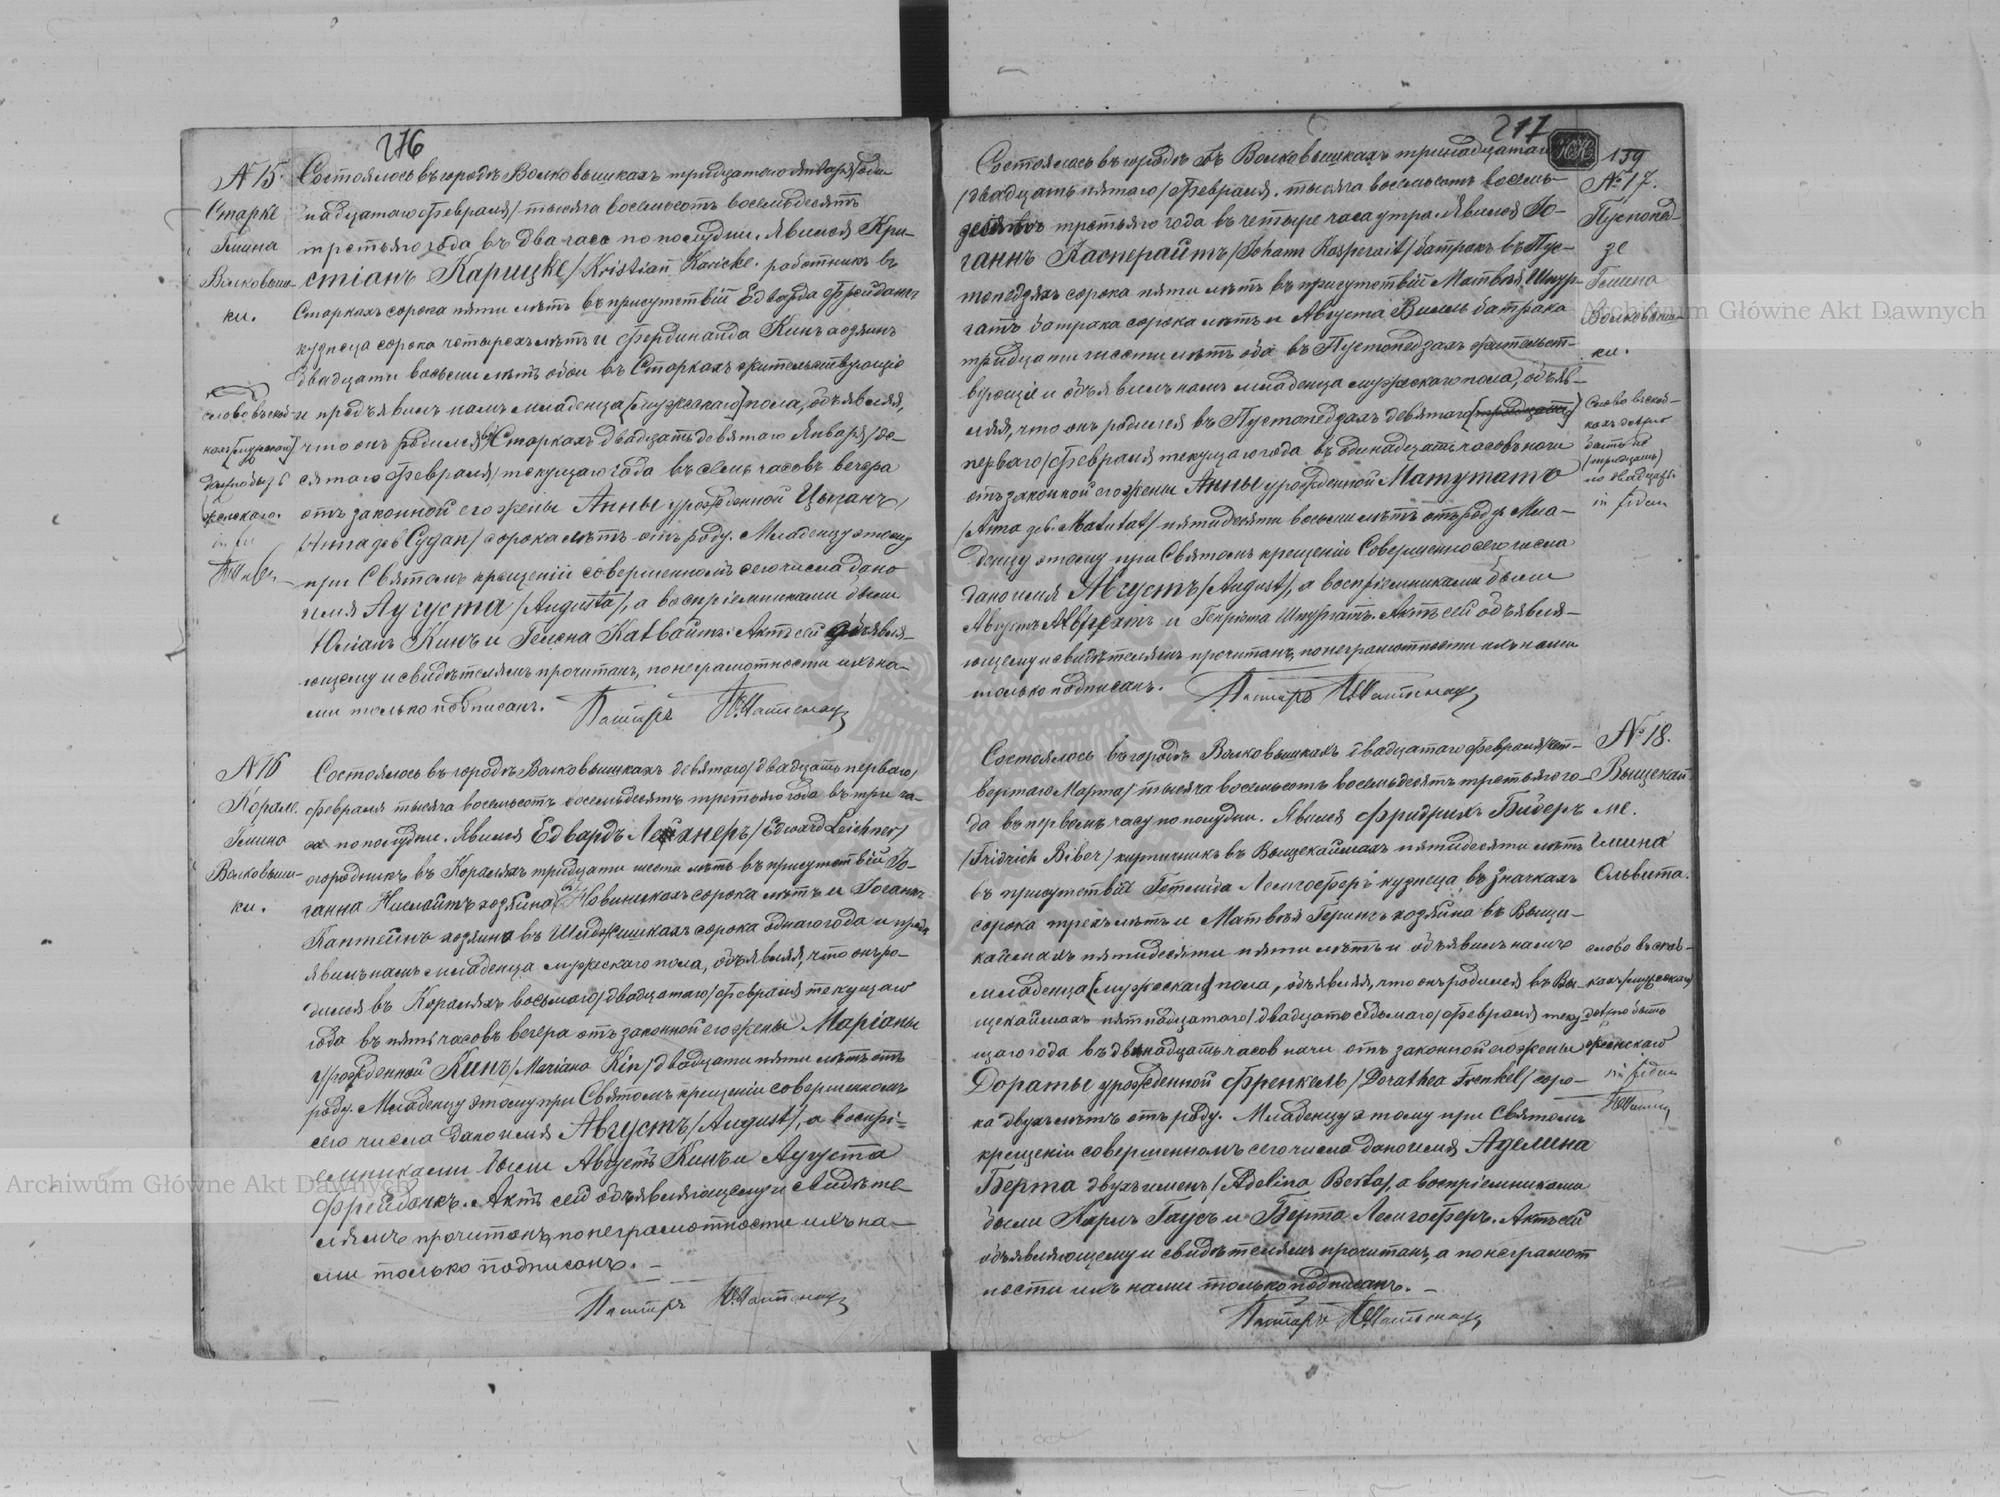 276
№ 15.
Старке
Гмина
Волковыш-
ки.
Состоялось въ городѣ Волковышкахъ тридцатаго Января/один-
надцатаго Февраля/ тысяча восемьсотъ восемьдесятъ
третьяго года въ два часа по полудни. Явился Кри-
стіанъ Карицке /Kristian Karicke/ работникъ въ
Старкахъ сорока пяти лѣтъ въ присутствіи Едварда Фрейданкъ
кузнеца сорока четырехъ лѣтъ и Фердинанда Кинъ
двадцати восьми лѣтъ обои въ Старкахъ жительствующіе
и предъявилъ намъ младенца [мужескаго] пола, объявляя,
что онъ родился въ Старкахъ двадцать девятаго Января/де-
сятаго Февраля/ текущаго года въ семь часовъ вечера
отъ законной его жены Анны урожденной Цыганъ,
/Anna geb. / сорока лѣтъ отъ роду. Младенцу этому
при Святомъ крещеніи совершенномъ сего числа дано
имя Аугуста /Augusta/, а воспріемниками были
Юліанъ Кинъ и Гелена Катвайтъ. Актъ сей объявля-
ющему и свидѣтелямъ прочитанъ, по неграмотности ихъ на-
ми только подписанъ.
Пасторъ
слово въ скоб-
кахъ [мужескаго]
должно быть
/женскаго.
№ 16
Корале.
Гмина
Волковыш-
ки.
Состоялось въ городѣ Волковышкахъ девятаго/двадцать перваго/
Февраля тысяча восемьсотъ восемьдесятъ третьяго года въ три ча-
са по полудни. Явился Едвардъ Лейхнеръ /Edward Leichner/
огородникъ въ Кораляхъ тридцати шести лѣтъ въ присутствіи Іо-
ганна хозяина въ Новиникахъ сорока лѣтъ и Іоганна
Каптейнъ хозяина въ сорока одного года и предъ
явилъ намъ младенца мужескаго пола, объявляя, что онъ ро-
дился въ Кораляхъ восьмаго/двадцатаго/Февраля текущаго
года въ пять часовъ вечера отъ законной его жены Маріаны
урожденной Кинъ /Mariana Kin/ двадцати пяти лѣтъ отъ
роду. Младенцу этому при Святомъ крещеніи совершенномъ
сего числа дано имя Августъ /August/, а воспрі-
емниками были Августъ Кинъ и Аугуста
Фрейданкъ. Актъ сей объявляющему и свидѣте-
лямъ прочитанъ, по неграмотности ихъ на-
ми только подписанъ.
Пасторъ
217
159
№ 17.
Пустопед-
зе
Гмина
Волковыш-
ки.
Состоялось въ городѣ Волковышкахъ тринадцатаго
/двадцать пятаго/ Февраля тысяча восемьсотъ восемь-
десятъ третьяго года въ четыре часа утра. Явился Іо-
ганнъ Касперайтъ /Johann Kasperait/ батракъ въ Пус-
топедзяхъ сорока пяти лѣтъ въ присутствіи Матвѣя Шпур-
гатъ батрака сорока лѣтъ и Августа батрака
тридцати шести лѣтъ оба въ Пустопедзахъ жительст-
вующіе и объявилъ намъ младенца мужескаго пола, объяв-
ляя, что онъ родился въ Пустопедзахъ девятаго [тридцать]
перваго/Февраля текущаго года въ одинадцать часовъ ночи
отъ законной его жены Анны урожденной Матутатъ
/Anna geb. Matutat/ пятидесяти восьми лѣтъ отъ роду. Мла-
денцу этому при Святомъ крещеніи совершенно сего числа
дано имя Августъ /August/, а воспріемниками были
Августъ и Генріета Шпургатъ. Актъ сей объявля-
ющему и свидѣтелямъ прочитанъ, по неграмотности ихъ нами
только подписанъ.
Пасторъ
Слово въ скоб-
кахъ должно
быть не
/тридцать/
но двадцать
in fidem
№ 18.
Выщекай-
ме.
Гмина
Ольвита.
Состоялось въ городѣ Волковышкахъ двадцатаго Февраля/чет-
вертаго Марта/ тысяча восемьсотъ восемьдесятъ третьяго го-
да въ первомъ часу по полудни. Явился Фридрихъ Биберъ
/Fridrich Biber/ кирпичникъ въ Выщекаймахъ пятидесяти лѣтъ
въ присутствіи Готлида кузнеца въ Значкахъ
сорока трехъ лѣтъ и Матвѣя Герингъ хозяина въ Выще-
каймахъ пятидесяти пяти лѣтъ и объявилъ намъ
младенца [мужескаго] пола, объявляя, что онъ родился въ Вы-
щекаймахъ пятнадцатаго/двадцать седьмаго/Февраля теку-
щаго года въ двѣнадцать часов ночи отъ законной его жены
Дораты урожденной Френкель /Dorathea Frenkel/ соро-
ка двухъ лѣтъ отъ роду. Младенцу этому при Святомъ
крещеніи совершенномъ сего числа дано имя Аделина
Берта двухъ именъ /Adelina Berta/, а воспріемниками
были Карлъ Гаусъ и Берта. Актъ сей
объявляющему и свидѣтелямъ прочитанъ, а по неграмот
ности ихъ нами только подписанъ.
Пасторъ
слово въ скоб-
кахъ/мужескаго/
должно быть
женскаго
in fidem
Archiwum Główne Akt Dawnych
Archiwum Główne Akt Dawnych